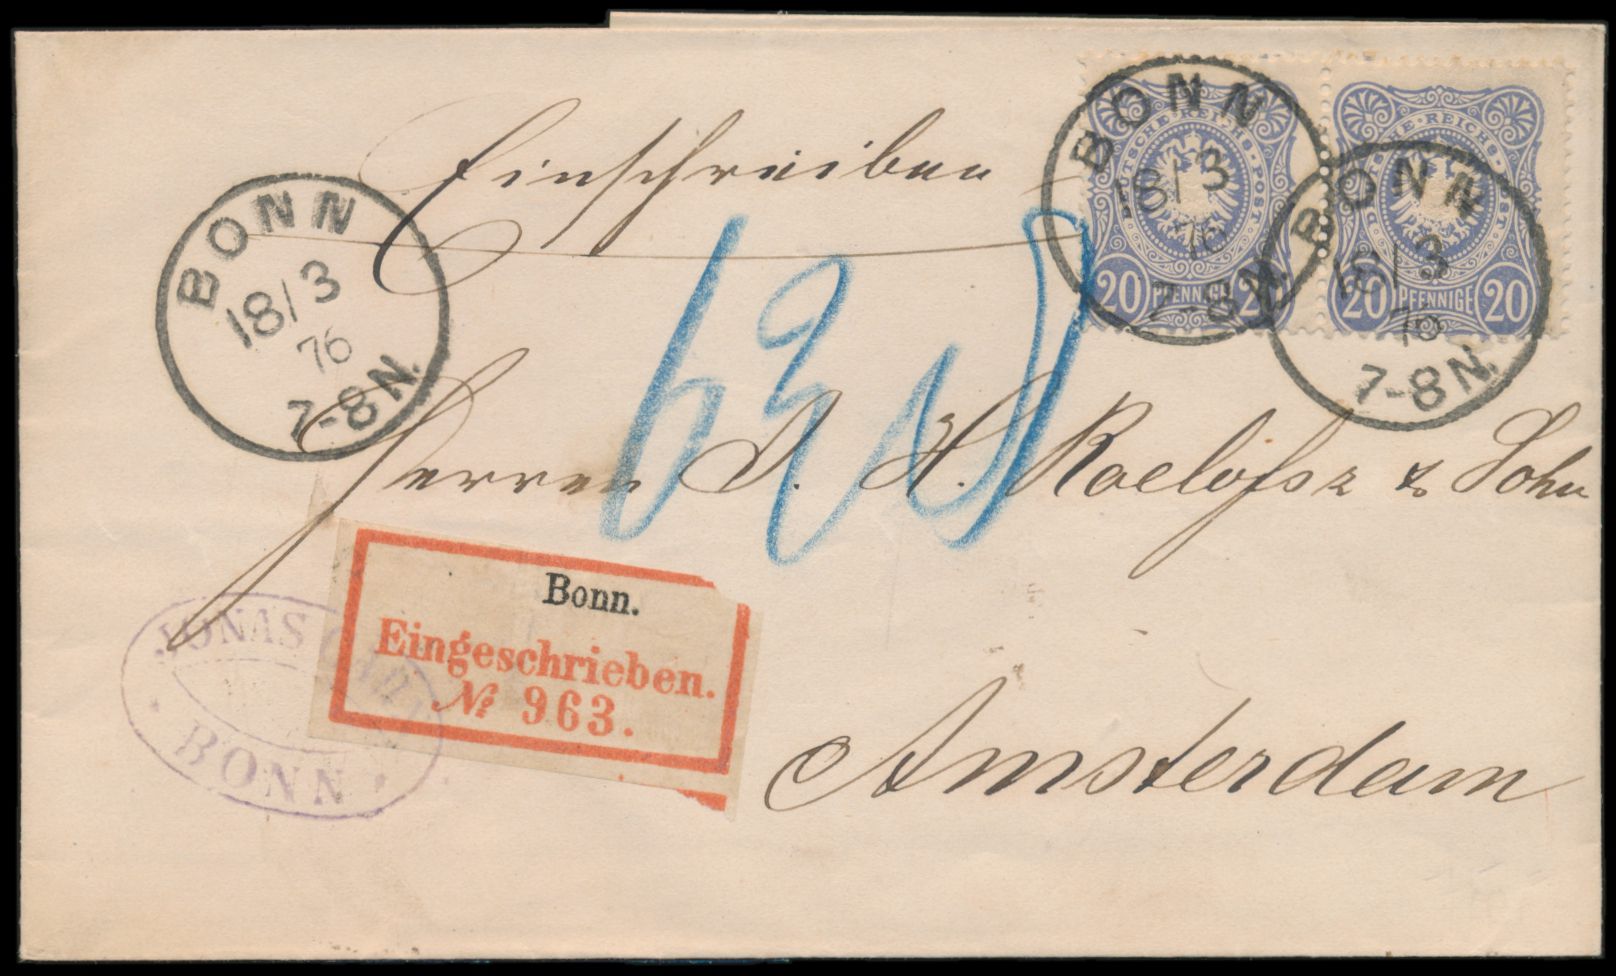 Einschreiben
BONN
18/3
76
7-8N.
BONN
18/3
76
7-8N.
BONN
18/3
76
7-8N.
DEUTSCHE REICHS-POST
20 PFENNIGE 20
DEUTSCHE REICHS-POST
20 PFENNIGE 20
Herren J. H. Roelofsz & Sohn
Amsterdam
Bonn.
Eingeschrieben.
№ 963.
JONAS
BONN